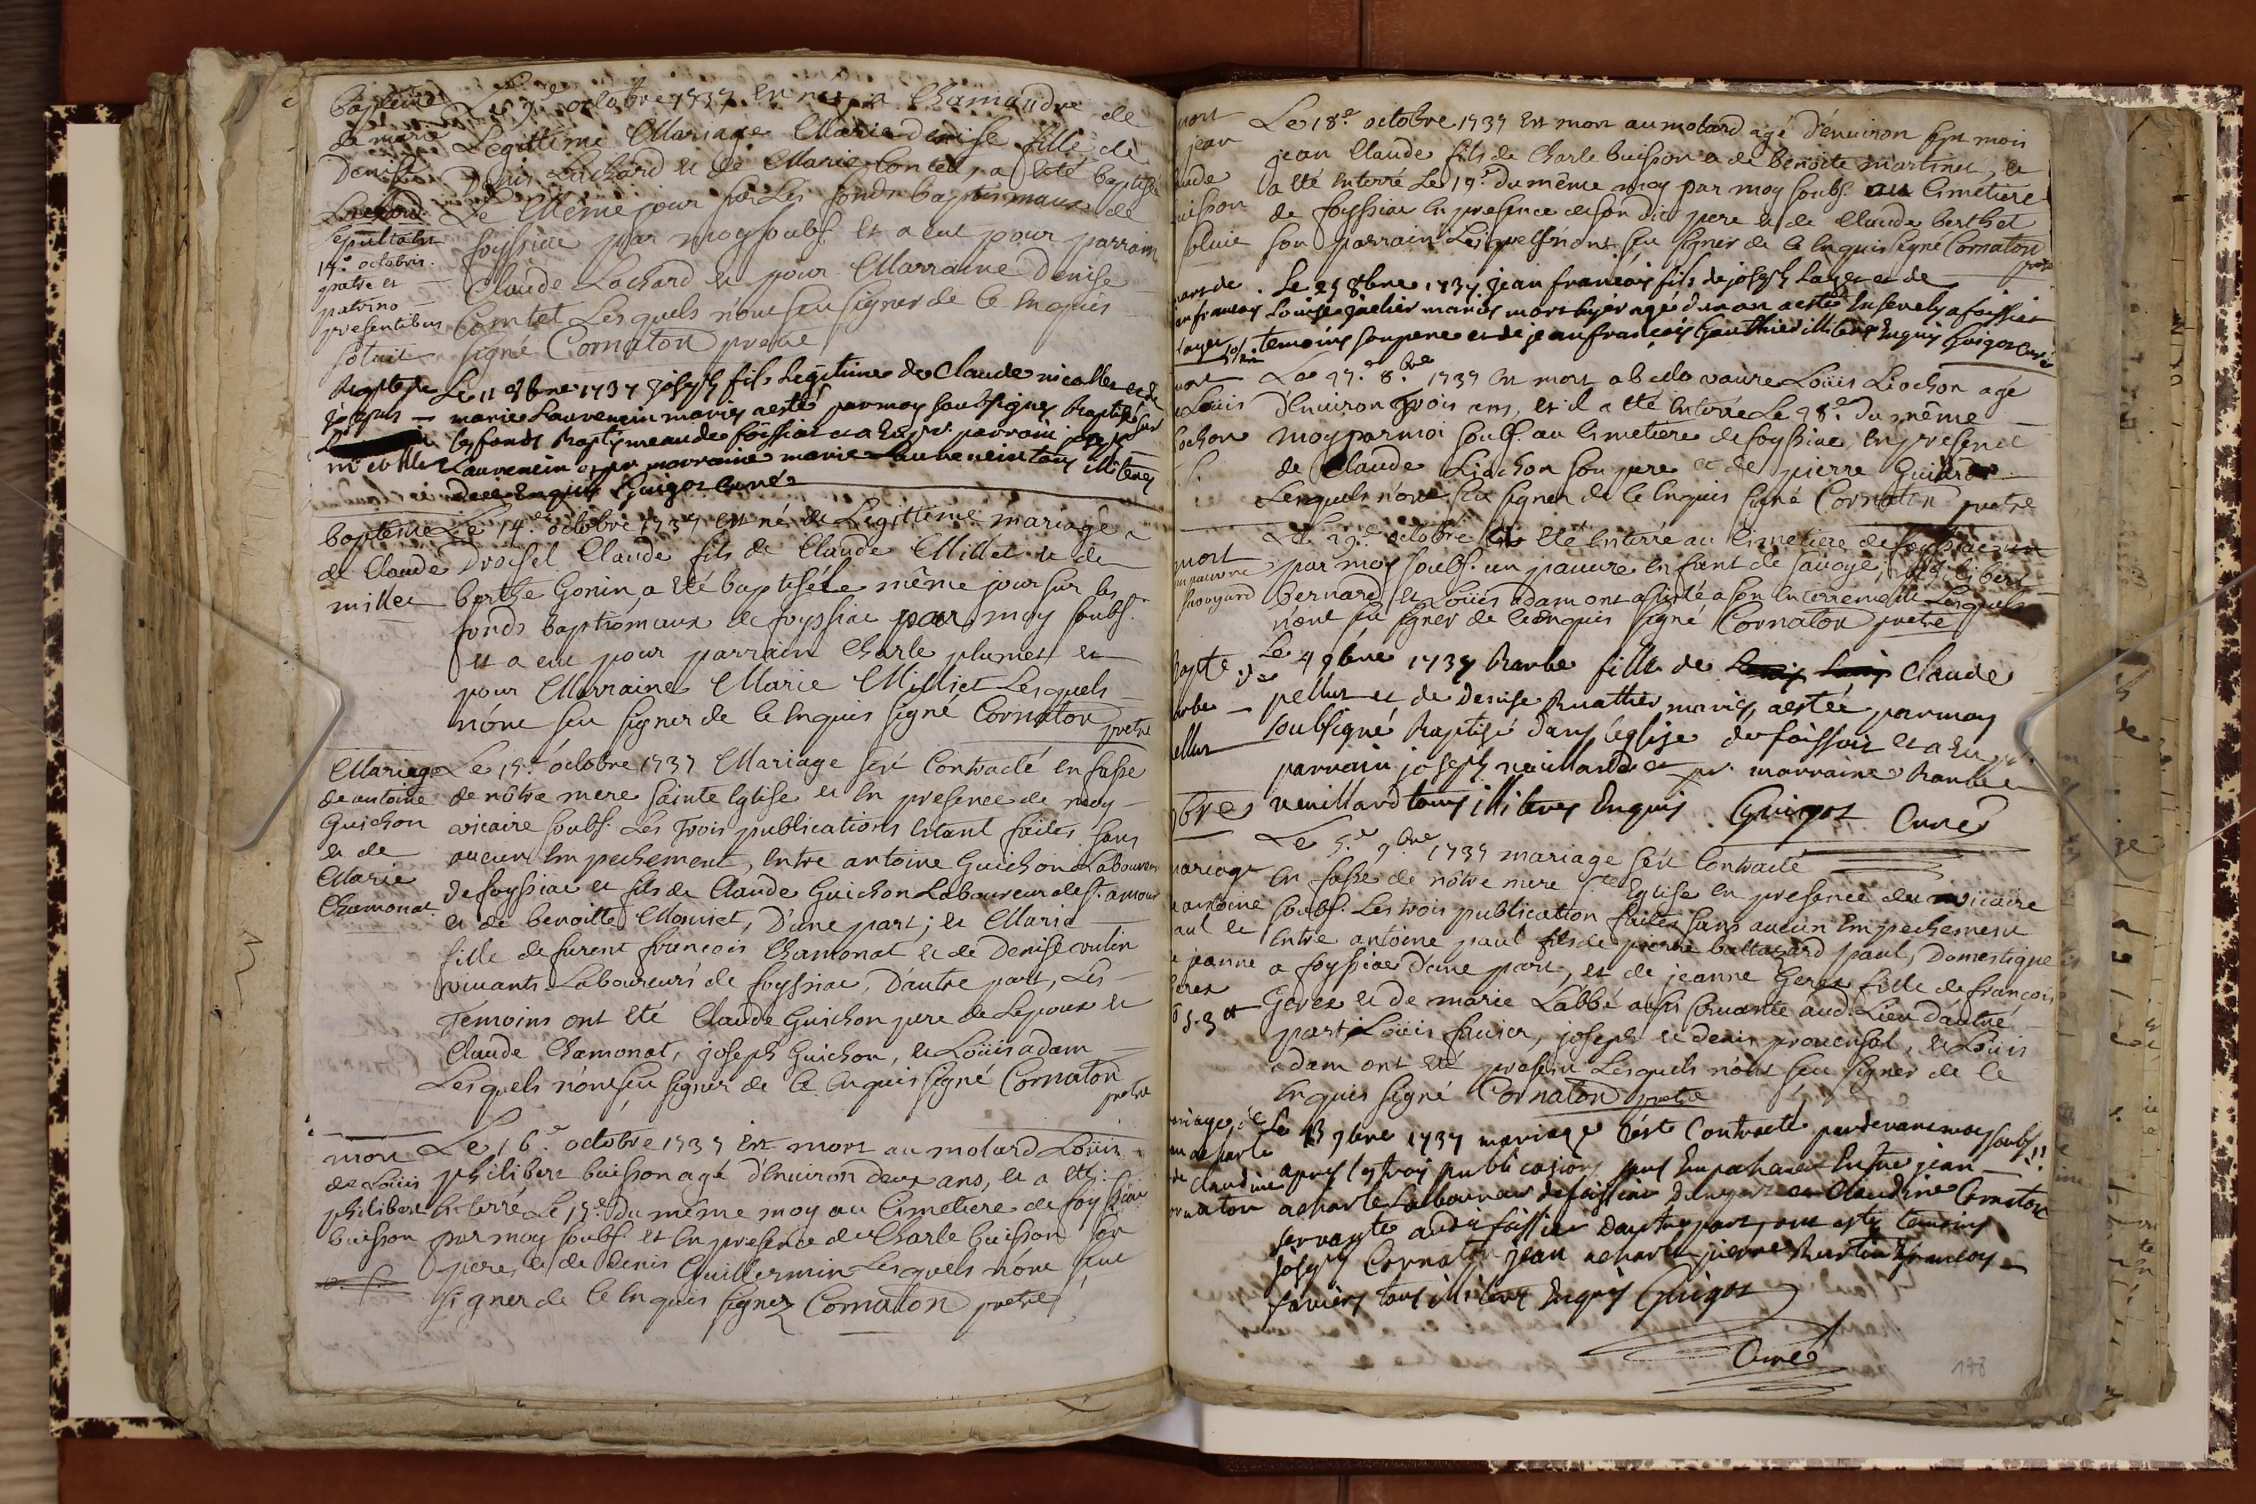 Baptême
de marie
Denise
Lachard
Sepulta est
14.e octobris
patre et
patrino
presentibus
solvit
Le 9.e octobre 1737 est née a Chamandre de
Legittime Mariage Marie Denise fille de
Denis Lachard et de Marie Contet, a été baptisé
Le Même jour sur Les fonds baptismaux de
foyssiac par moy soubs. et a eut pour parrain
Claude Lachard et pour Marraine Denise
Comtet Lesquels n'ont seu signer de ce Enquis
signé Cornaton pretre
Baptesme
Josephus
nicollet
Le 11 8bre 1737 Joseph fils Legitime de Claude nicollet et de
marie Lauvenein mariés a esté par moy soubsigné Baptisé sur
les fonds Baptismeaux de foissiat et a eu pr. parrain joseph
Lauvenein et pr marraine marie Lauvenein tous illiterés
Enquis Guigot Curé
baptême
de Claude
millet
Le 14.e octobre 1737 est né de Legittime mariage a
Droisel Claude fils de Claude Millet et de
berthe Gonin, a eté baptisé Le même jour sur les
fonds baptismaux de foyssiac par moy soubs.
et a eut pour parrain Charle plumet et
pour Marraine Marie Milliet Lesquels
n'ont seu signer de ce Enquis signé Cornaton pretre
Mariage
de antoine
Guichon
et de
Marie
Chamonat
Le 15.e octobre 1737 Mariage s'est Contracté en fasse
de nôtre mere Sainte Eglise et en presence de moy
vicaire soubs. Les Trois publications Estant faites sans
aucun Empechement, Entre antoine Guichon Laboureur
de foyssiac et fils de Claude Guichon Laboureur de st. amour
et de benoitte Monnet, D'une part; et Marie
fille de furent françois Chamonat et de Denise vulin
vivants Laboureurs de foyssiac, D'autre part, Les
Temoins ont Eté Claude Guichon pere de Lepoux et
Claude Chamonat, joseph Guichon, et Loüis adam
Lesquels n'ont seu signer de Ce Enquis signé Cornaton pretre
mort
de Loüis
philibert
buisson
Le 16.e octobre 1737 Est mort au motard Loüis
philibert buisson agé d'Environ deux ans, et a eté
Enterré Le 17.e Du même moy au Cimetiere de foyssiac
par moy soubs. et En presence de Charle buisson son
pere, et de denis Guillermin Lesquels n'ont seut
signer de Ce Enquis signez Cornaton pretre
mort
jean
aude
uisson
solvit
Le 18.e octobre 1737 Est mort au motard agé d'environ sept mois
jean Claude fils de Charle buisson et de benoite martinet, et
a eté Enterré Le 19.e du même moy par moy soubs. au Cimetiere
de foyssiac En presence de son dit pere et de Claude berthet
son parrain Lesquels n'ont seu signer de Ce Enquis signé Cornaton
pretre
mort de
an francois
Layer
Le 25 8bre 1737 jean francois fils de joseph Layer et de
Louise mariés mort hyer agé d'un an a esté Ensevely a foissiat
temoins son pere et de jean françois Gauthier illiterés Enquis Guigot Curé
mort
Loüis
Lochon
Le 27.e 8.bre 1737 est mort a Loüis Liochon agé
d'Environ trois ans, et il a eté Enterré Le 28.e du même
moy par moi soubs. au Cimetiere de foyssiac En presence
de Claude Liochon son pere et de pierre Guiard
Lesquels n'ont seu signer de Ce Enquis signé Cornaton pretre
mort
un pauvre
savoyard
Le 29.e octobre a eté Enterré au Cimetiere de foyssiac
par moy soubs. un pauvre Enfant de savoye,
bernard et Loüis adam ont assisté a son Enterrement Lesquels
n'ont seu signer de ce Enquis signé Cornaton pretre
Bapte
arbe
ellut
9bre
Le 4 9bre 1737 Barbe fille de Claude
pellut et de Denise Buathier mariés, a esté par moy
soubsigné Baptisé dans l'église de foissiat et a Eu pr.
parrain joseph reuillard et pr. marraine Barbe
reuillard tous illiterés Enquis Guigot Curé
mariage
antoine
aul et
jeanne
Gerex
Le 5.e 9.bre 1737 mariage s'est Contracté
En fasse de nôtre mere S.te Eglise en presence du vicaire
soubs. Les trois publication faites sans aucun Empechement
Entre antoine paul fils de pierre baltazard paul, Domestique
a foyssiac D'une part, et de jeanne Gerex fille de françois
Gerex et de marie Labbé aussi servante aud. Lieu d'autre
part Loüis joseph et denis provensal, et Loüis
adam ont Eté presens Lesquels n'ont seu signer de ce
Enquis signé Cornaton pretre
Le 13 9bre 1737 mariage s'est Contracté pardevant moy soubs.
apres les trois publications sans Empechement Entre jean
acharle Laboureur de foissiat d'une part et Claudine Cornaton
servante audit foissiat d'autre part, ont esté temoins
joseph Cornaton jean acharle pierre francois
tous illiterés Enquis Guigot
Curé
178